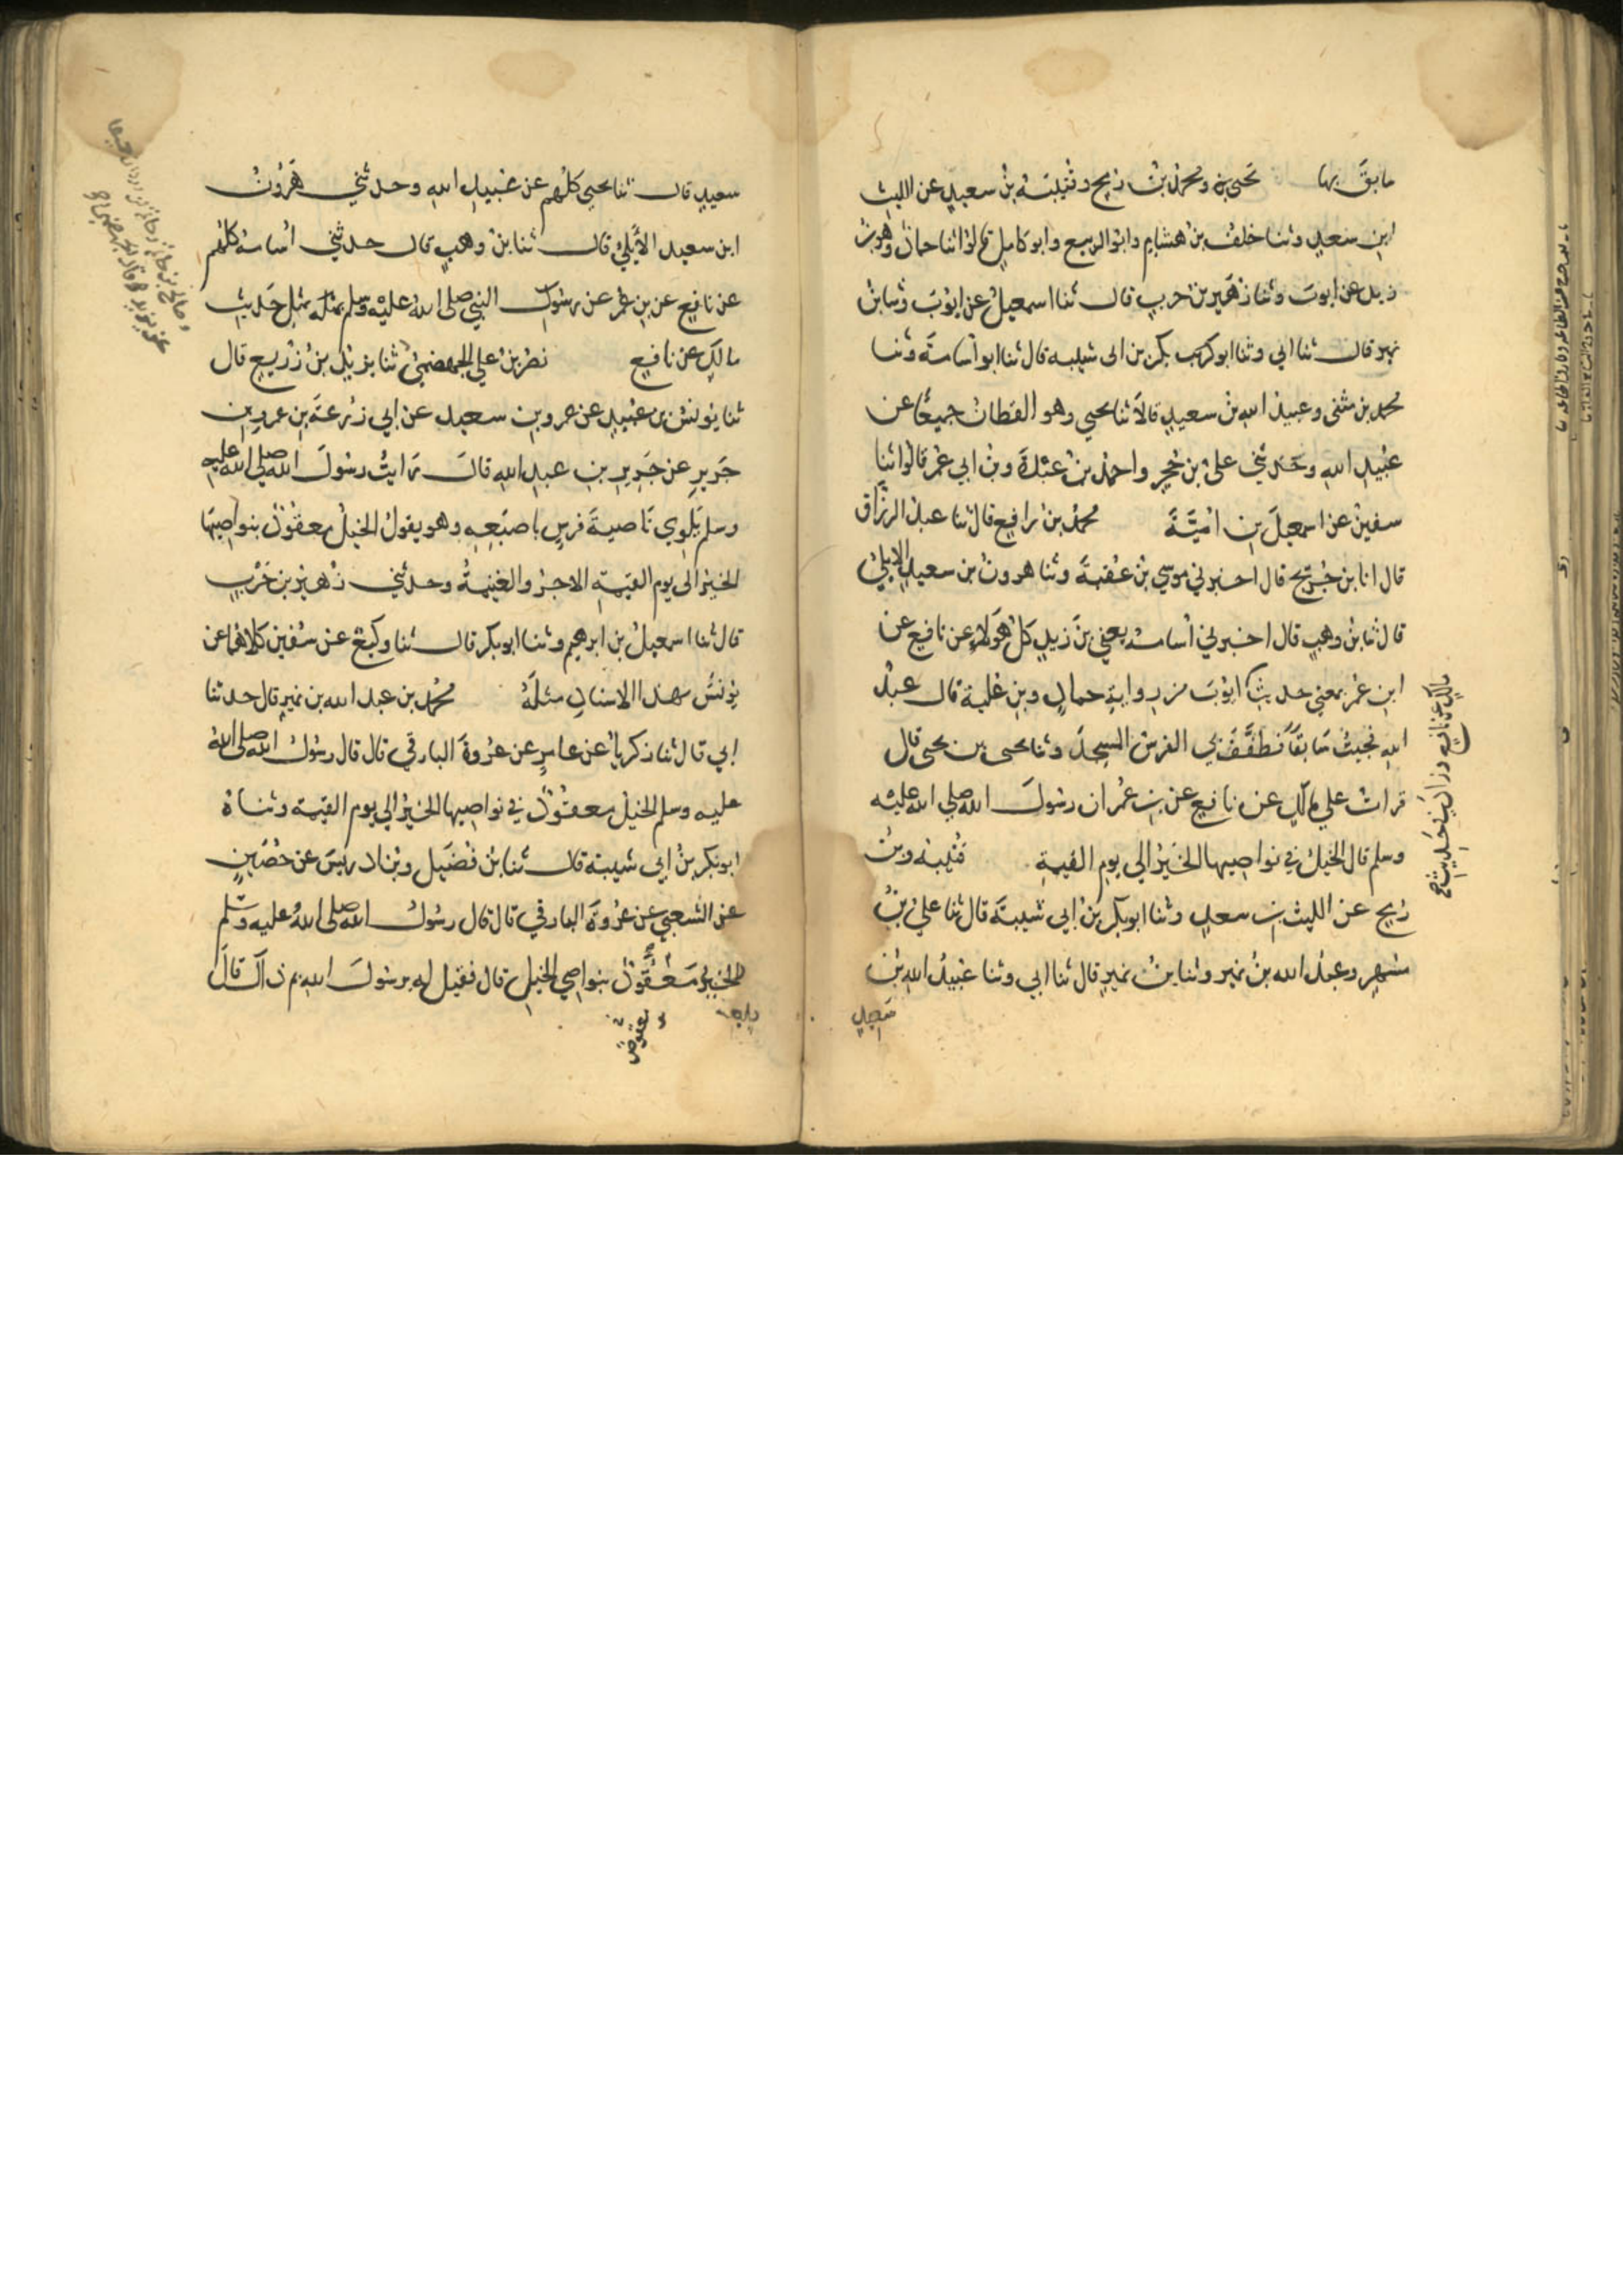 سابق بها يحيى بن ومحمد بن رمح وقتيبة بن سعيد عن الليث
ابن سعد وثنا خلف بن هشام وابو الربيع وابو كامل قالوا ثنا حماد وهو بن
زيد عن ايوب وثنا زهير بن حرب قال ثنا اسمعيل عن ايوب وثنا بن
نمير قال ثنا ابي وثنا ابو كريب بكر بن ابي شيبه قال ثنا ابو اسامة وثنا
محمد بن مثنى وعبيد الله بن سعيد قالا ثنا يحيي وهو القطان جميعا عن
عبيد الله وحدثني على بن حجر واحمد بن عبدة وبن ابي عمر قالوا ثنا
سفين عن اسمعيل بن امية محمد بن رافع قال ثنا عبد الرزاق
قال انا بن جريج قال اخبرني موسي بن عقبة وثنا هرون بن سعيد الايلي
قال ثنا بن وهب قال اخبرني اسامة يعني بن زيد كل هولاء عن نافع عن
ابن عمر بمعني حديث ايوب من رواية حماد وبن علية قال عبد
الله فجيت سابقا فطفف بي الفرس المسجد وثنا يحيى بن يحيى قال
قرات علي ملك عن نافع عن بن عمر ان رسول الله صلي الله عليه
وسلم قال الخيل في نواصيها الخير الي يوم القيمة قتيبة وبن
رمح عن الليث بن سعد وثنا ابو بكر بن ابي شيبة قال ثنا علي بن
مسهر وعبد الله بن نمير وثنا بن نمير قال ثنا ابي وثنا عبيد الله بن
سعيد
مالك عن نافع وزاد في حديث
سعيد قال ثنا يحيي كلهم عن عبيد الله وحدثني هرون
ابن سعيد الأيلي قال ثنا بن وهب قال حدثني اسامة كلهم
عن نافع عن بن عمر عن رسول النبي صلى الله عليه وسلم بمثله بمثل حديث
مالك عن نافع نصر بن علي الجهضمي ثنا يزيد بن زريع قال
ثنا يونس بن عبيد عن عمرو بن سعيد عن ابي زرعة بن عمرو بن
جرير عن جرير بن عبد الله قال رايت رسول الله صلى الله عليه
وسلم يلوي ناصية فرس باصبعه وهو يقول الخيل معقود بنواصيها
الخير الى يوم القيمة الاجر والغنيمة وحدثني زهير بن حرب
قال ثنا اسمعيل بن ابرهيم وثنا ابو بكر قال ثنا وكيع عن سفين كلاهما عن
يونس بهذا الاسناد مثله محمد بن عبد الله بن نمير قال حدثنا
ابي قال ثنا زكريا عن عامر عن عروة البارقي قال قال رسول الله صلى الله
عليه وسلم الخيل معقود في نواصيها الخير الي يوم القيمة وثناه
ابو بكر بن ابي شيبة قال ثنا بن فضيل وبن ادريس عن حصين
عن الشعبي عن عروة البارقي قال قال رسول الله صلى الله عليه وسلم
الخير معقود بنواصي الخيل قال فقيل له يرسول الله بم ذاك قال
معقوص